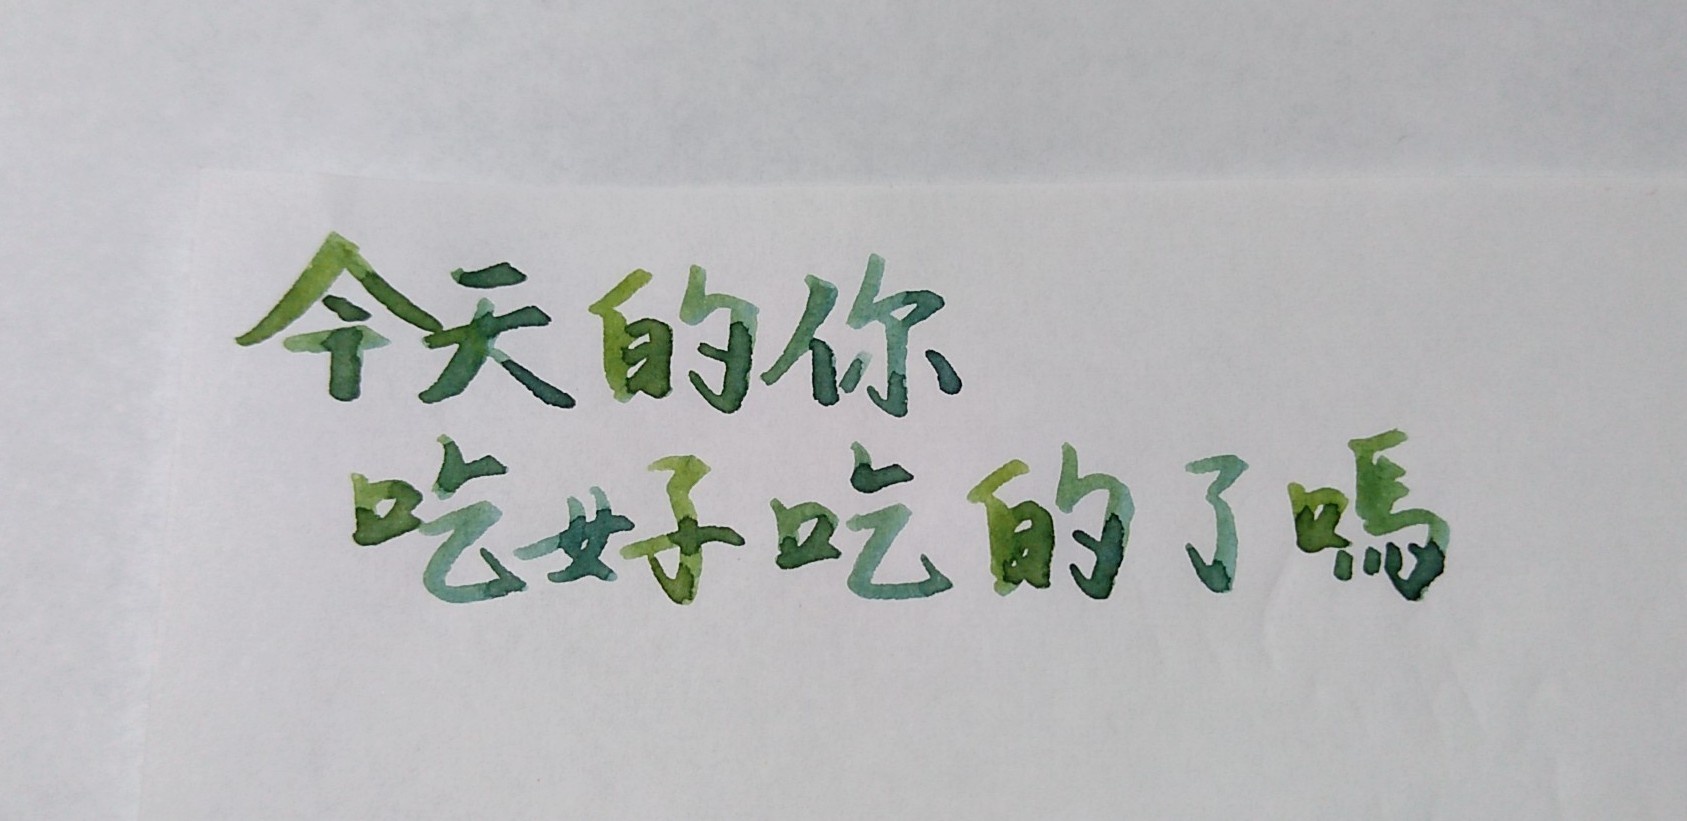 今天的你
吃好吃的了嗎